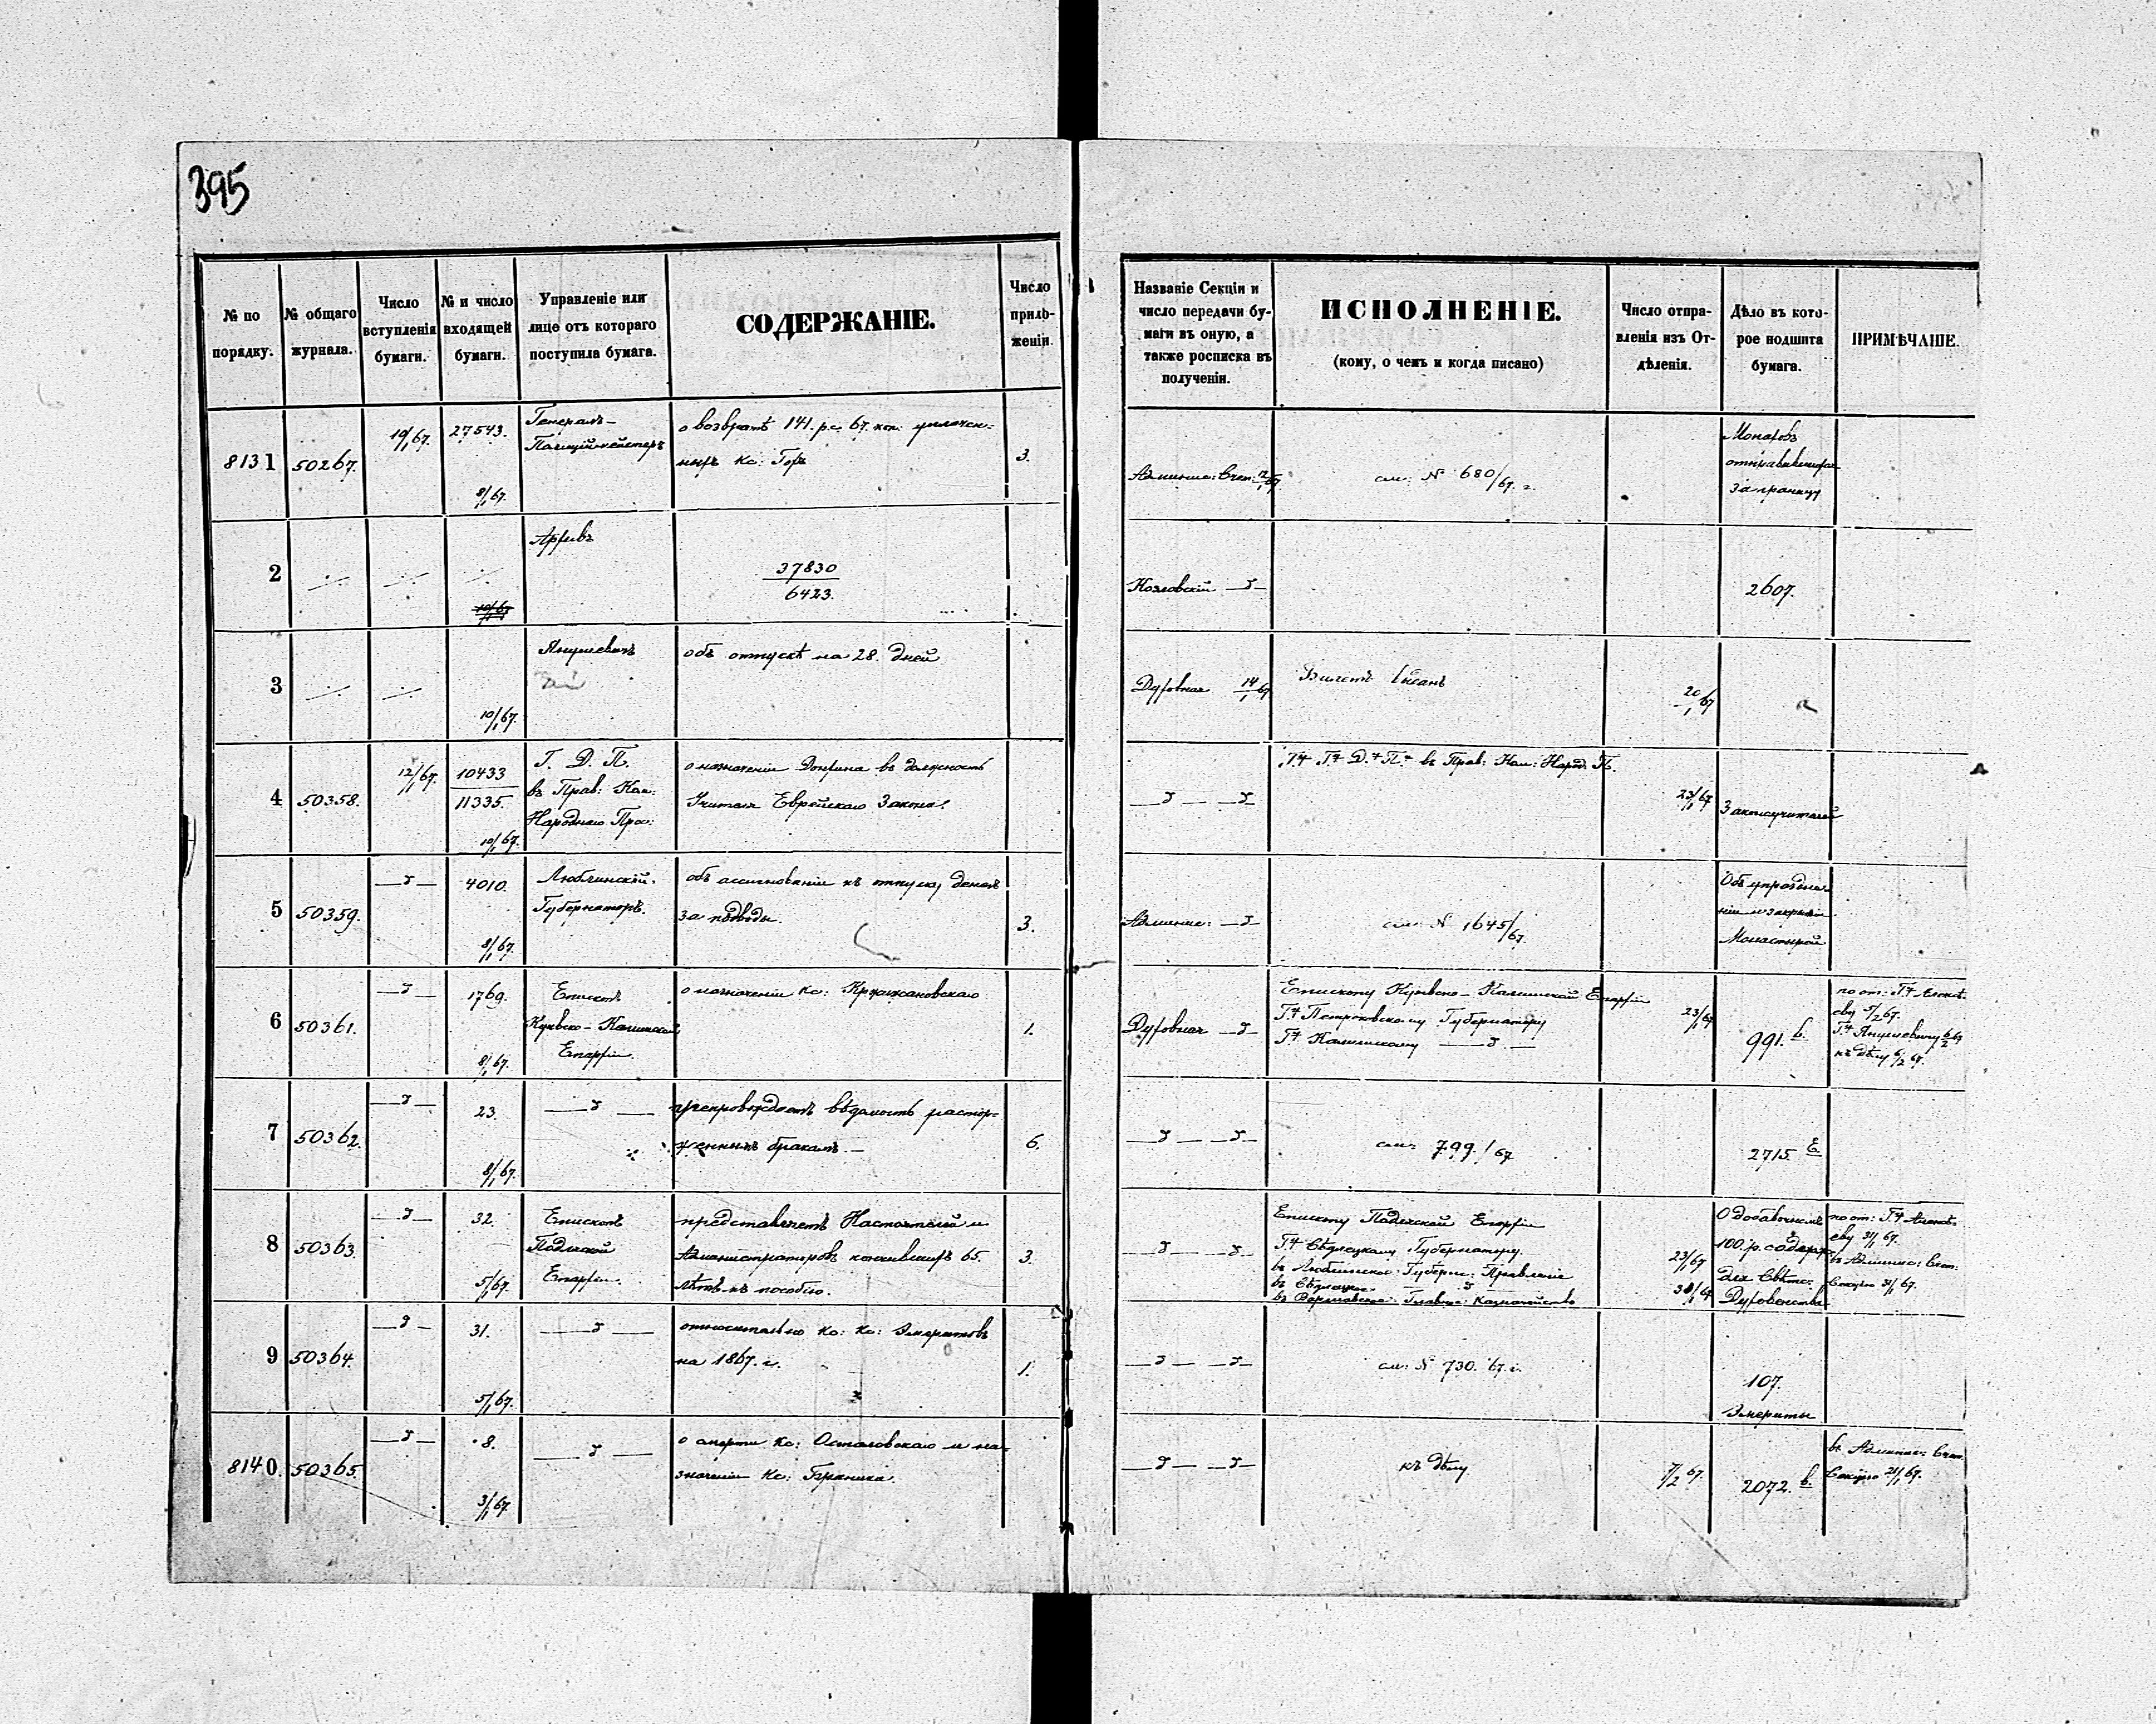 395
№ по порядку.
№ общаго журнала.
Число вступленія бумаги.
№ и число входящей бумаги.
Управленіе или лице отъ котораго поступила бумага.
СОДЕРЖАНІЕ.
Число приложеніи.
Названіе Секціи и число передачи бумаги въ оную, а также росписка въ полученіи.
ИСПОЛНЕНІЕ.
(кому, о чемъ и когда писано)
Число отправленія изъ Отдѣленія.
Дѣло въ которое подшита бумага.
ПРИМѢЧАНІЕ.
8131
50267.
10/1 67.
27543.
8/1 67.
Генералъ-
Полиціймейстеръ
о возвратѣ 141. р. с. 67. коп: уплачен-
ныхъ Кс:
3.
Админис: Счет: 12/1 67.
см: № 680/67. г.
Монаховъ
отправленныхъ
за границу
2
Архивъ
37830
6423.
Козловскій
2607.
3
10/1 67.
Янушевичъ
объ отпускѣ на 28. дней
Духовная 14/1 67
Билетъ
20/1 67
4
50358.
12/1 67.
10433
11335.
10/1 67.
Г. Д. П.
въ Прав: Ком:
Народнаго Прос:
о назначеніи Донхина въ должность
Учителя Еврейскаго Закона.
Г+ Г+ Д.+ П.+ въ Прав: Ком: Народ. П.
23/1 67
Законоучителей
5
50359.
4010.
8/1 67.
Люблинскій
Губернаторъ.
объ ассигнованіи къ отпуску денегъ
за подводы.
3.
Админис:
см: № 1645/67.
Объ упраздне-
ніи и закрытіи
Монастырей
6
50361.
1769.
8/1 67.
Епископъ
Куявско-Калишской
Епархіи
о назначеніи Кс: Кржижановскаго
1.
Духовная
Епископу Куявско-Калишской Епархіи
Г+ Петроковскому Губернатору
Г+ Калишскому
23/1 67
991. b.
по от: Г+ Алексѣ-
еву 5/2 67.
Г+ Янушевичу 6/2 67
къ дѣлу 6/2 67.
7
50362.
23.
8/1 67.
препровождаетъ вѣдомость растор-
женныхъ бракамъ.
6.
см: 799./67
2715. E
8
50363.
32.
5/1 67.
Епископъ
Подляской
Епархіи.
представляетъ Настоятелей и
Администраторовъ кончившихъ 65.
лѣтъ къ пособію.
3.
Епископу Подляской Епархіи
Г+ Сѣдлецкому Губернатору.
въ Люблинское Губерн: Правленіе
въ Сѣдлецкое
въ Варшавское Главное Казначейство
23/1 67
30/1 67
О добавочномъ
100 р. содерж.
для Свѣтс:
Духовенства
по от: Г+ Алексѣ-
еву 31/1 67.
въ Админис: Счет:
Секцію 31/1 67.
9
50364.
31.
5/1 67.
относительно Кс: Кс: Эмеритовъ
на 1867. г.
1.
см: № 730. 67. г.
107.
Эмериты
8140.
50365.
8.
3/1 67.
о смерти Кс: Осталовскаго и на-
значеніи Кс: Граника.
къ дѣлу
7/2 67.
2072. b.
въ Админис: Счет
Секцію 21/1 67.